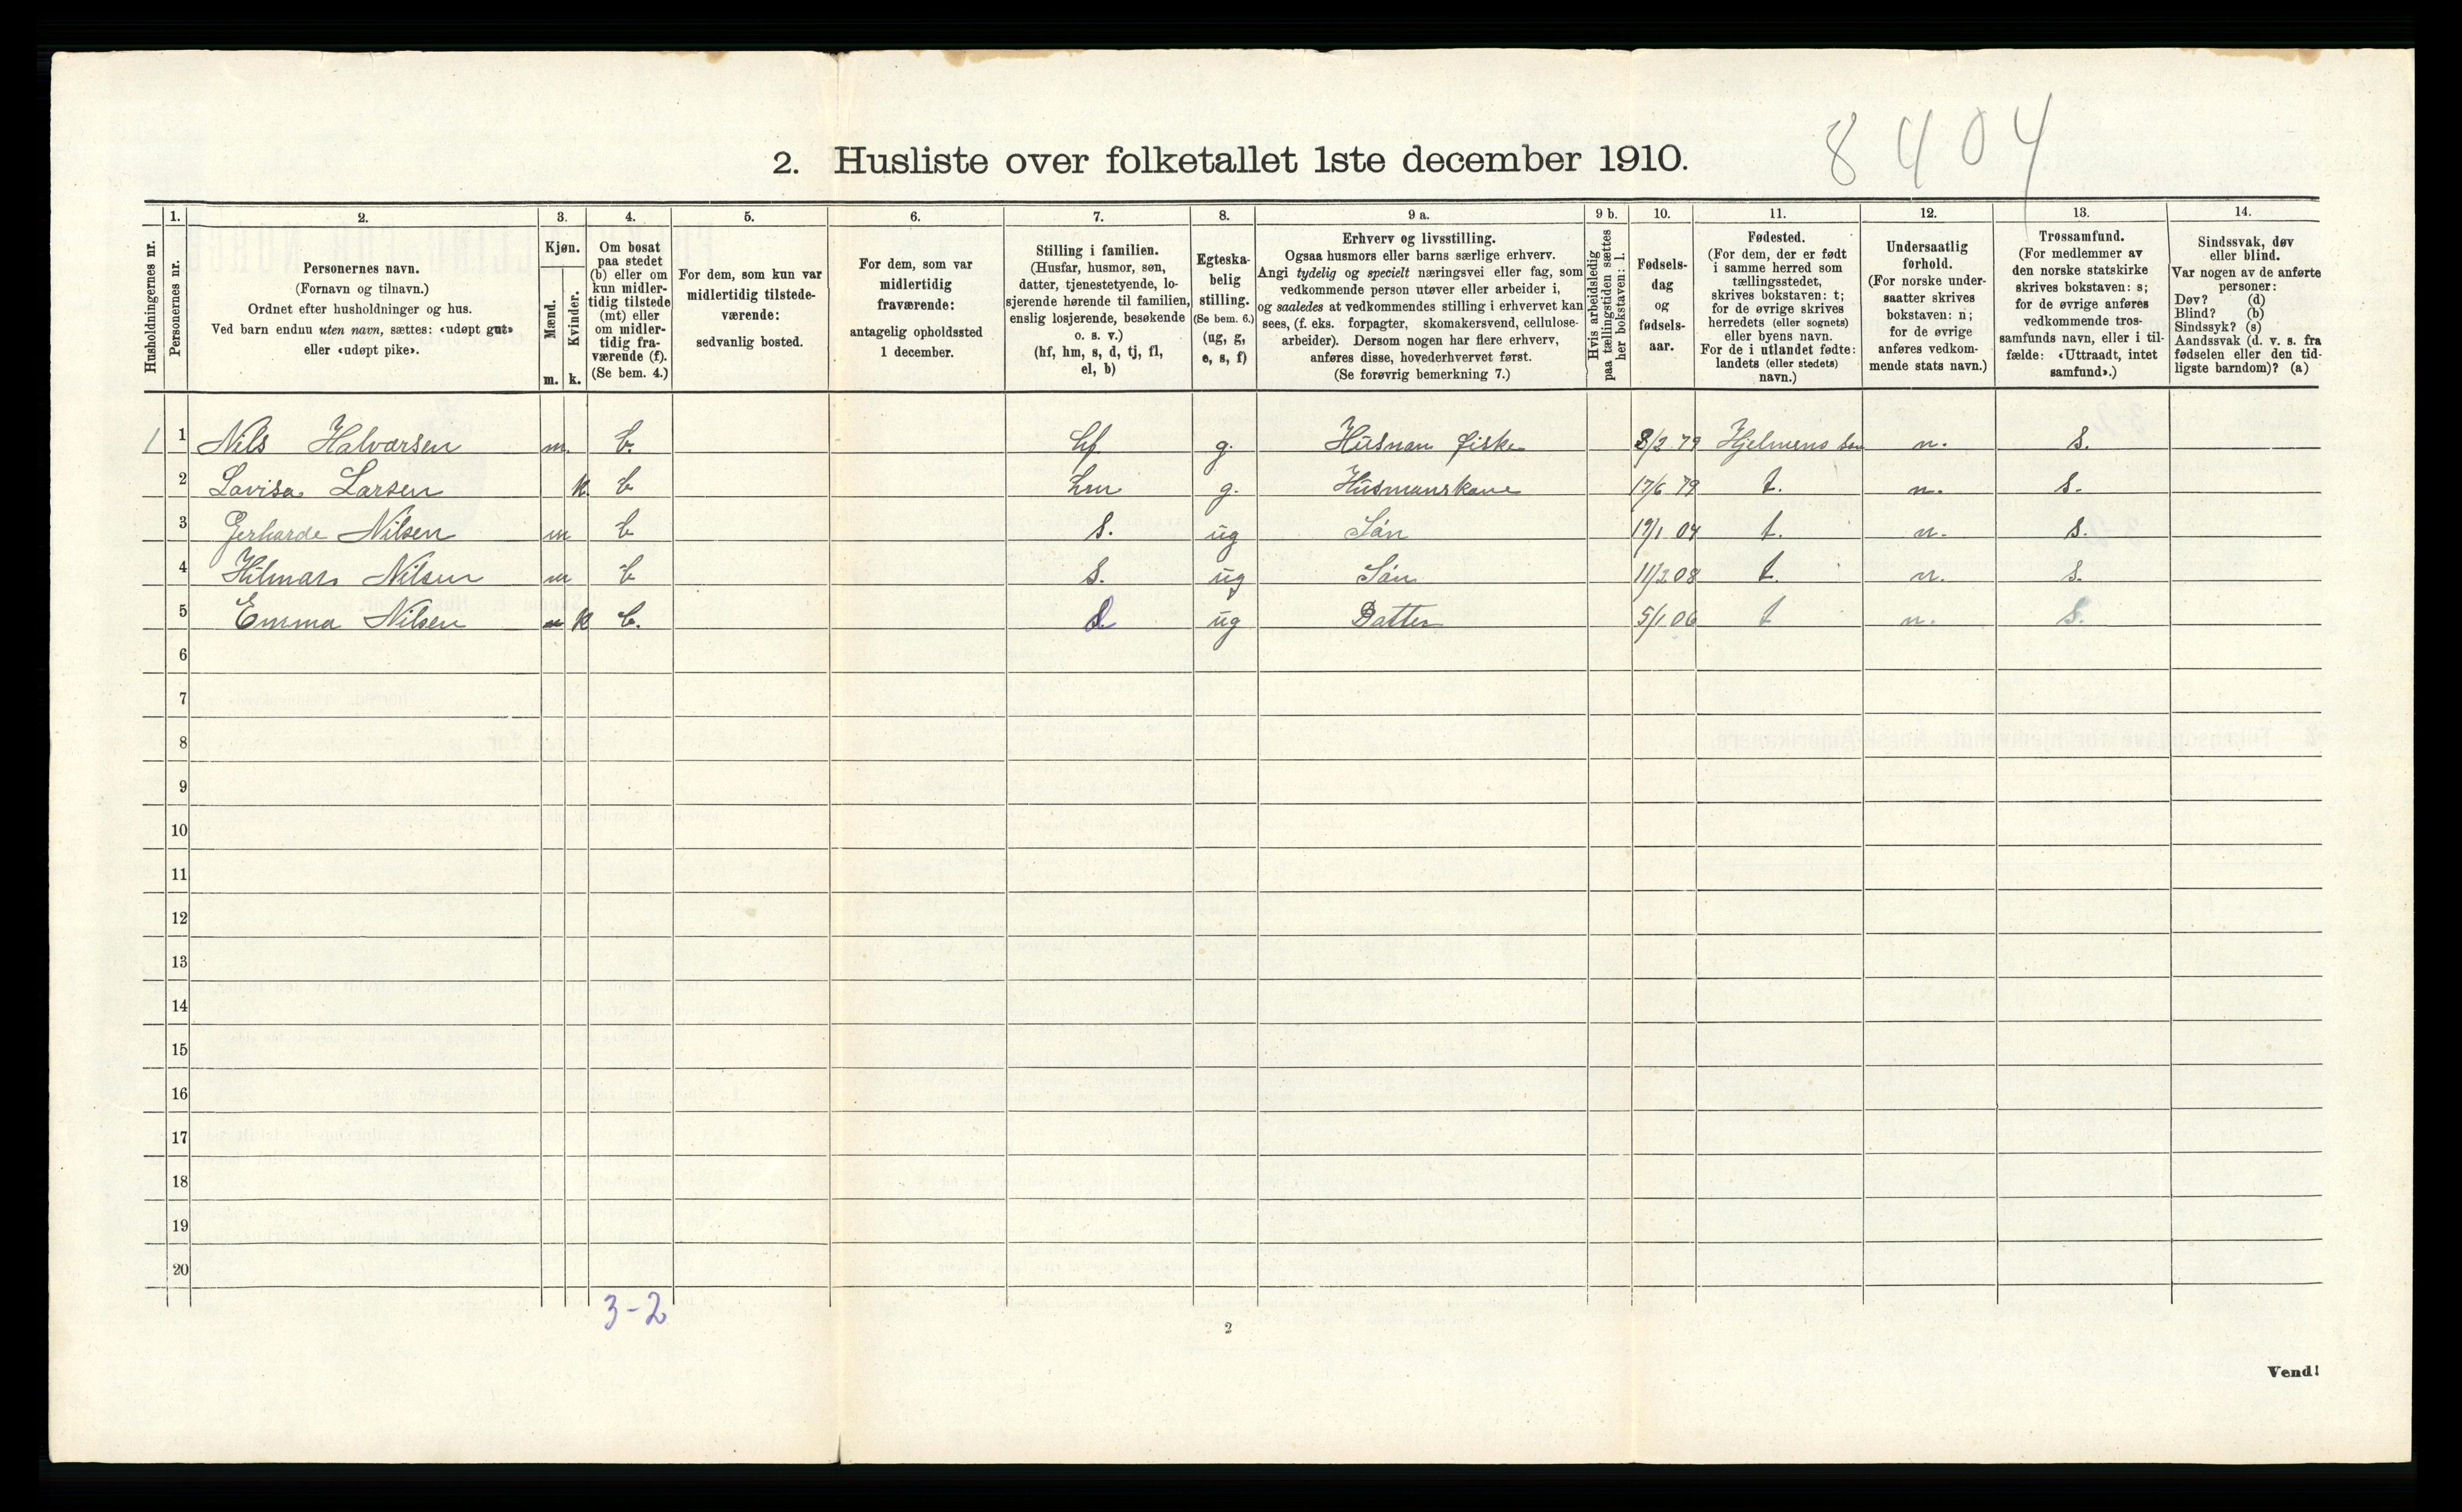 8404
2. Husliste over folketallet 1ste december 1910.
Husholdningernes nr.
1.
Personernes nr.
2.
Personernes navn.
(Fornavn og tilnavn.)
Ordnet efter husholdninger og hus.
Ved barn endnu uten navn, sættes: «udøpt gut»
eller «udøpt pike».
3.
Kjøn.
Mænd.
Kvinder.
m. k.
4.
Om bosat
paa stedet
(b) eller om
kun midler-
tidig tilstede
(mt) eller
om midler-
tidig fra-
værende (f).
(Se bem. 4.)
5.
For dem, som kun var
midlertidig tilstede-
værende:
sedvanlig bosted.
6.
For dem, som var
midlertidig
fraværende:
antagelig opholdssted
1 december.
7.
Stilling i familien.
(Husfar, husmor, søn,
datter, tjenestetyende, lo-
sjerende hørende til familien,
enslig losjerende, besøkende
o. s. v.)
(hf, hm, s, d, tj, fl,
el, b)
8.
Egteska-
belig
stilling.
(Se bem. 6.)
(ug, g,
e, s, f)
9 a.
Erhverv og livsstilling.
Ogsaa husmors eller barns særlige erhverv.
Angi tydelig og specielt næringsvei eller fag, som
vedkommende person utøver eller arbeider i,
og saaledes at vedkommendes stilling i erhvervet kan
sees, (f. eks. forpagter, skomakersvend, cellulose-
arbeider). Dersom nogen har flere erhverv,
anføres disse, hovederhvervet først.
(Se forøvrig bemerkning 7.)
9 b.
Hvis arbeidsledig
paa tællingstiden sættes
her bokstaven: l.
10.
Fødsels-
dag
og
fødsels-
aar.
11.
Fødested.
(For dem, der er født
i samme herred som
tællingsstedet,
skrives bokstaven: t;
for de øvrige skrives
herredets (eller sognets)
eller byens navn.
For de i utlandet fødte:
landets (eller stedets)
navn.)
12.
Undersaatlig
forhold.
(For norske under-
saatter skrives
bokstaven: n;
for de øvrige
anføres vedkom-
mende stats navn.)
13.
Trossamfund.
(For medlemmer av
den norske statskirke
skrives bokstaven: s;
for de øvrige anføres
vedkommende tros-
samfunds navn, eller i til-
fælde: «Uttraadt, intet
samfund».)
14.
Sindssvak, døv
eller blind.
Var nogen av de anførte
personer:
Døv? (d)
Blind? (b)
Sindssyk? (s)
Aandssvak (d. v. s. fra
fødselen eller den tid-
ligste barndom)? (a)
1 1 Nils Halvarsen m. b. hf g. Husnan fiske 8/3 79 Hjelmens n. s.
2 Lovisa Larsen k. b hm g. Husmanskone 17/6 79 t. n. s.
3 Gerharde Nilsen m b s. ug Sön 19/1 04 t. n. s.
4 Hilmar Nilsen m b s. ug Sön 11/3 08 t. n. s.
5 Emma Nilsen k b. d ug Datter 5/1 06 t n. s.
6
7
8
9
10
11
12
13
14
15
16
17
18
19
20
3-2
2
Vend!